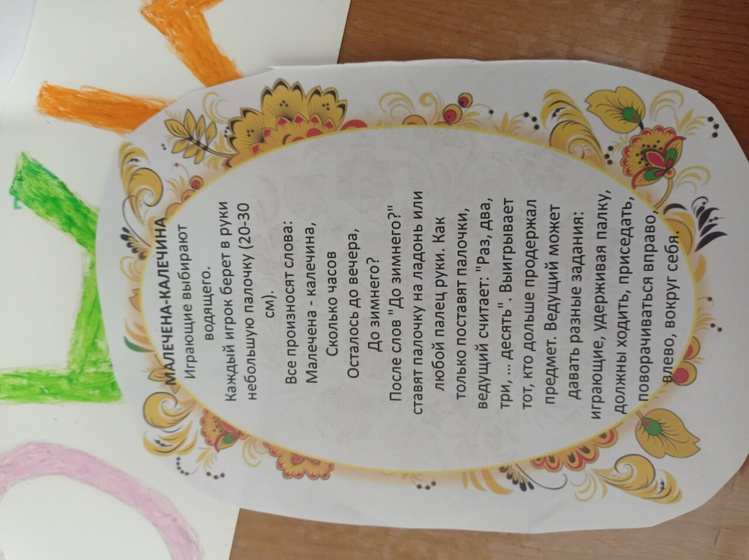 МАЛЕЧЕНА-КАЛЕЧИНА
Играющие выбирают
водящего.
Каждый игрок берет в руки
небольшую палочку (20-30
см).
Все произносят слова:
Малечена - калечина,
Сколько часов
Осталось до вечера,
До зимнего?
После слов "До зимнего?"
ставят палочку на ладонь или
любой палец руки. Как
только поставят палочки,
ведущий считает: "Раз, два,
три, ... десять" . Выигрывает
тот, кто дольше продержал
предмет. Ведущий может
давать разные задания:
играющие, удерживая палку,
должны ходить, приседать,
поворачиваться вправо,
влево, вокруг себя.